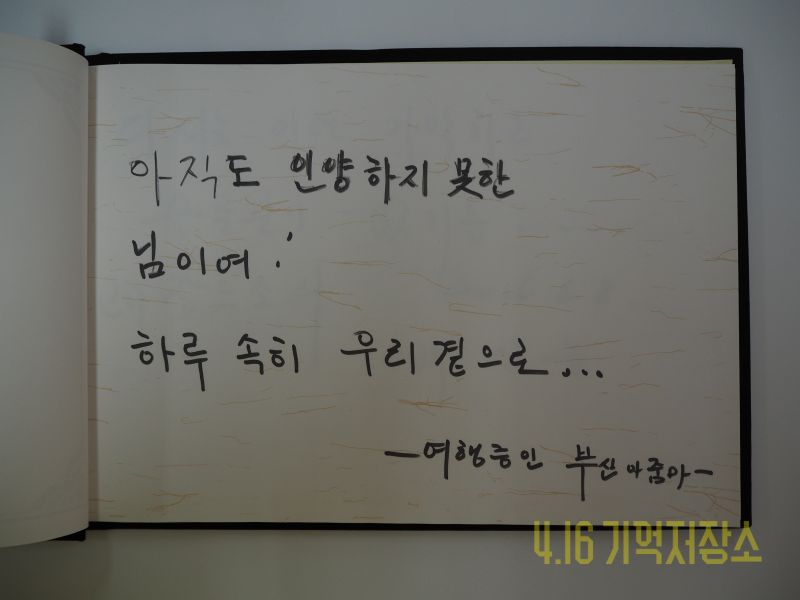 아직도 인양하지 못한
님이여!
하루 속히 우리 곁으로...
-여행중인 부산아줌마-
4.16 기억저장소